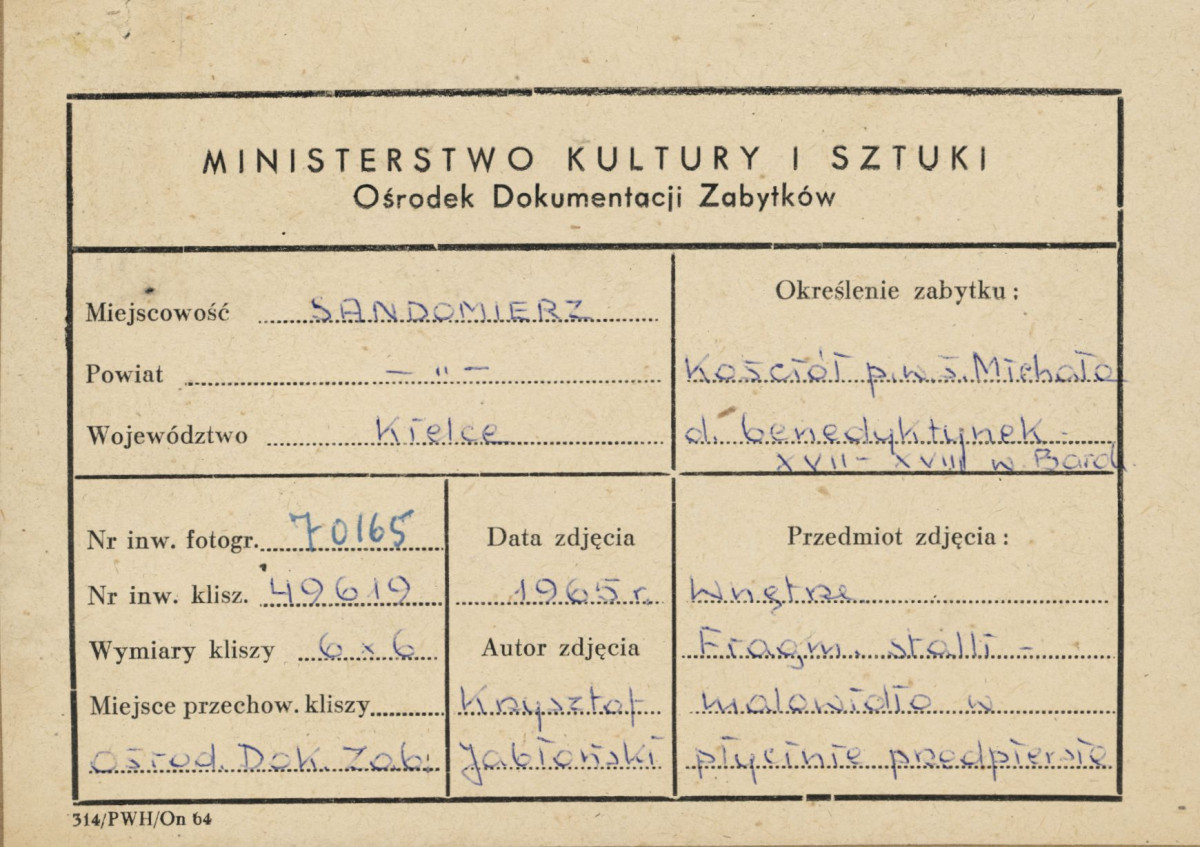 MINISTERSTWO KULTURY I SZTUKI
Ośrodek Dokumentacji Zabytków
Miejscowość SANDOMIERZ
Powiat — " —
Województwo Kielce
Określenie zabytku:
Kościół p.w. ś. Michała
d. benedyktynek -
XVII - XVIII w Barok
Nr inw. fotogr. 70165
Nr inw. klisz. 49619
Wymiary kliszy 6 x 6
Miejsce przechow. kliszy
Ośrod. Dok. Zab.
Data zdjęcia
1965 r.
Autor zdjęcia
Krzysztof
Jabłoński
Przedmiot zdjęcia:
Wnętrze
Fragm. stalli -
malowidło w
płycinie przedpiersia
314/PWH/On 64